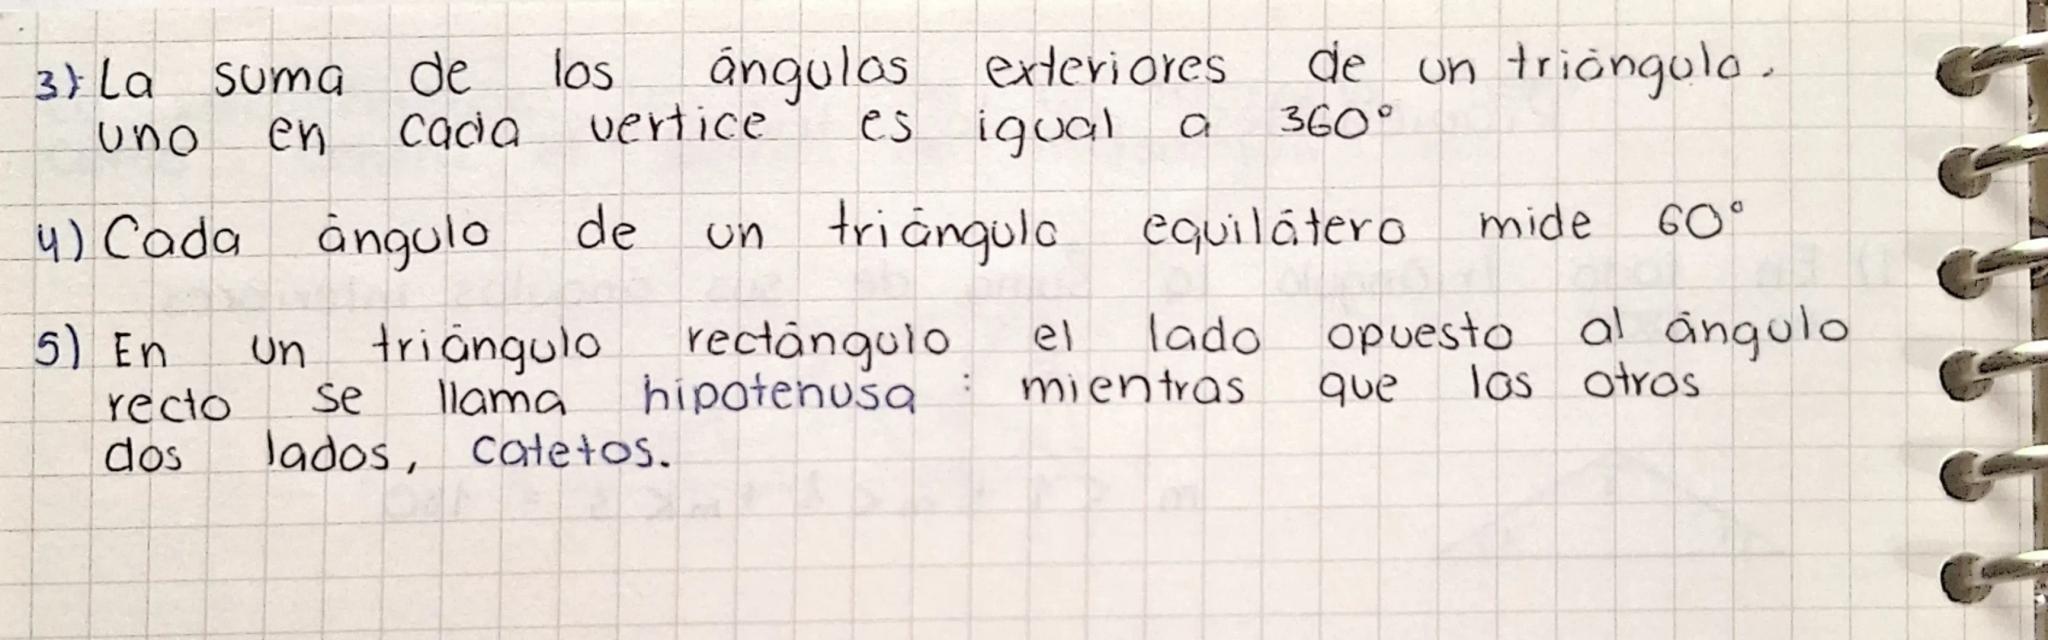 3) La suma de los ángulos exteriores de un triángulo.
uno en cada vertice es igual a 360°
4) Cada ángulo de un triángulo equilátero mide 60°
5) En un triángulo rectángulo el lado opuesto al ángulo
recto se llama hipotenusa : mientras que los otros
dos lados, catetos.